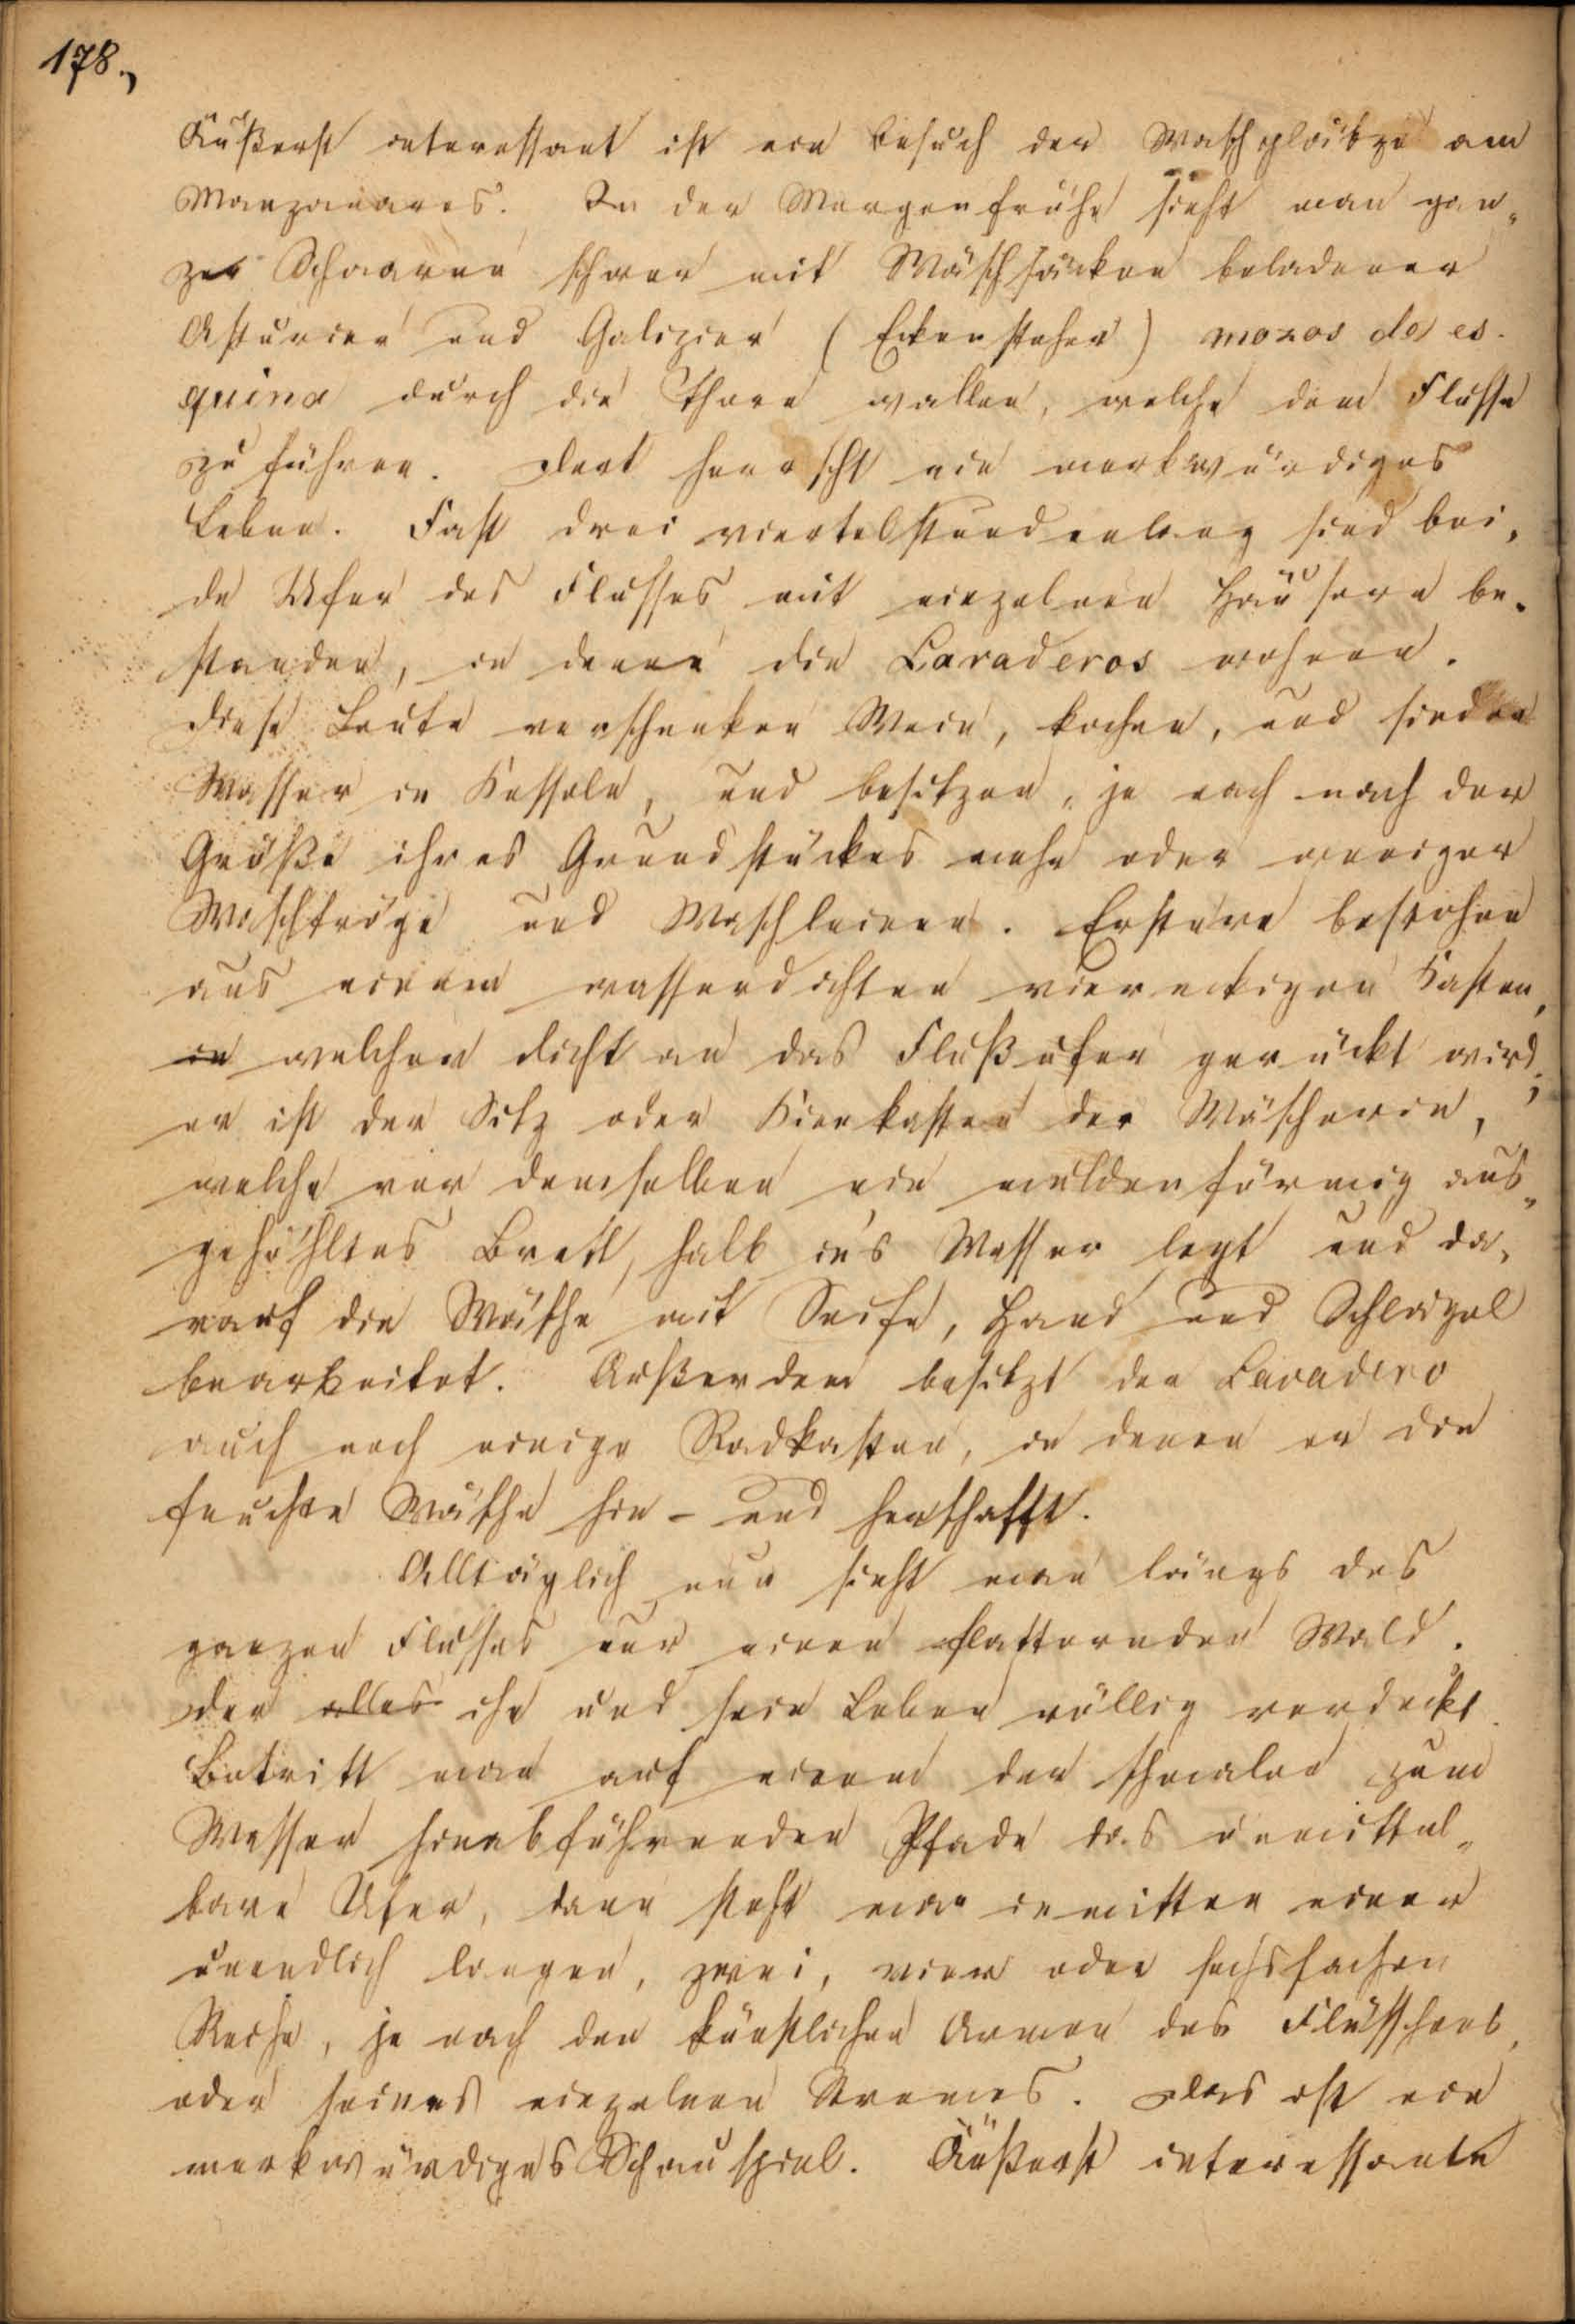 178.,
Äußerst interessant ist ein Besuch der Waschplätze am
Manzanares. In der Morgenfrühe sieht man gan„
ze Schaaren schwer mit Wäschsäcken beladener
Asturier und Galizier (Eckensteher) mozos de es-
quina durch die Thore wallen, welche dem Flusse
zu führen. Dort herrscht ein merkwürdiges
Leben. Fast drei viertelstundenlang sind bei„
de Ufer des Flusses mit einzelnen Häusern be„
standen, in denen die Lavaderos wohnen.
Diese Leute verschenken Wein, kochen, und sieden
Wasser in Kesseln, und besitzen, je nach nach der
Größe ihres Grundstückes mehr oder weniger
Waschtröge und Waschleinen. Erstere bestehen
aus einem wasserdichten viereckigen Kasten,
in welcher dicht an das Flußufer gerückt wird;
er ist der Sitz oder Kniekasten der Wäscherin,
welche vor demselben ein muldenförmig aus„
gehöhltes Brett, halb in's Wasser legt und da„
rauf die Wäsche mit Seife, Hand und Schlägel
bearbeitet. Außerdem besitzt der Lavadero
auch noch einige Radkasten, in denen er die
feuchte Wäsche hin- und herschafft.
Alltäglich nun sieht man längs des
ganzen Flusses nur einen flatternden Wald,
der alles ihn und sein Leben völlig verdeckt.
Betritt man auf einem der schmalen zum
Wasser hinabführenden Pfade das unmittel„
bare Ufer, dann steht man inmitten einer
unendlich langen, zwei, vier oder sechsfachen
Reihe, je nach den künstlichen Armen des Flüsschens,
oder seines einzelnen Stromes. Das ist ein
merkwürdiges Schauspiel. Äußerst interessante